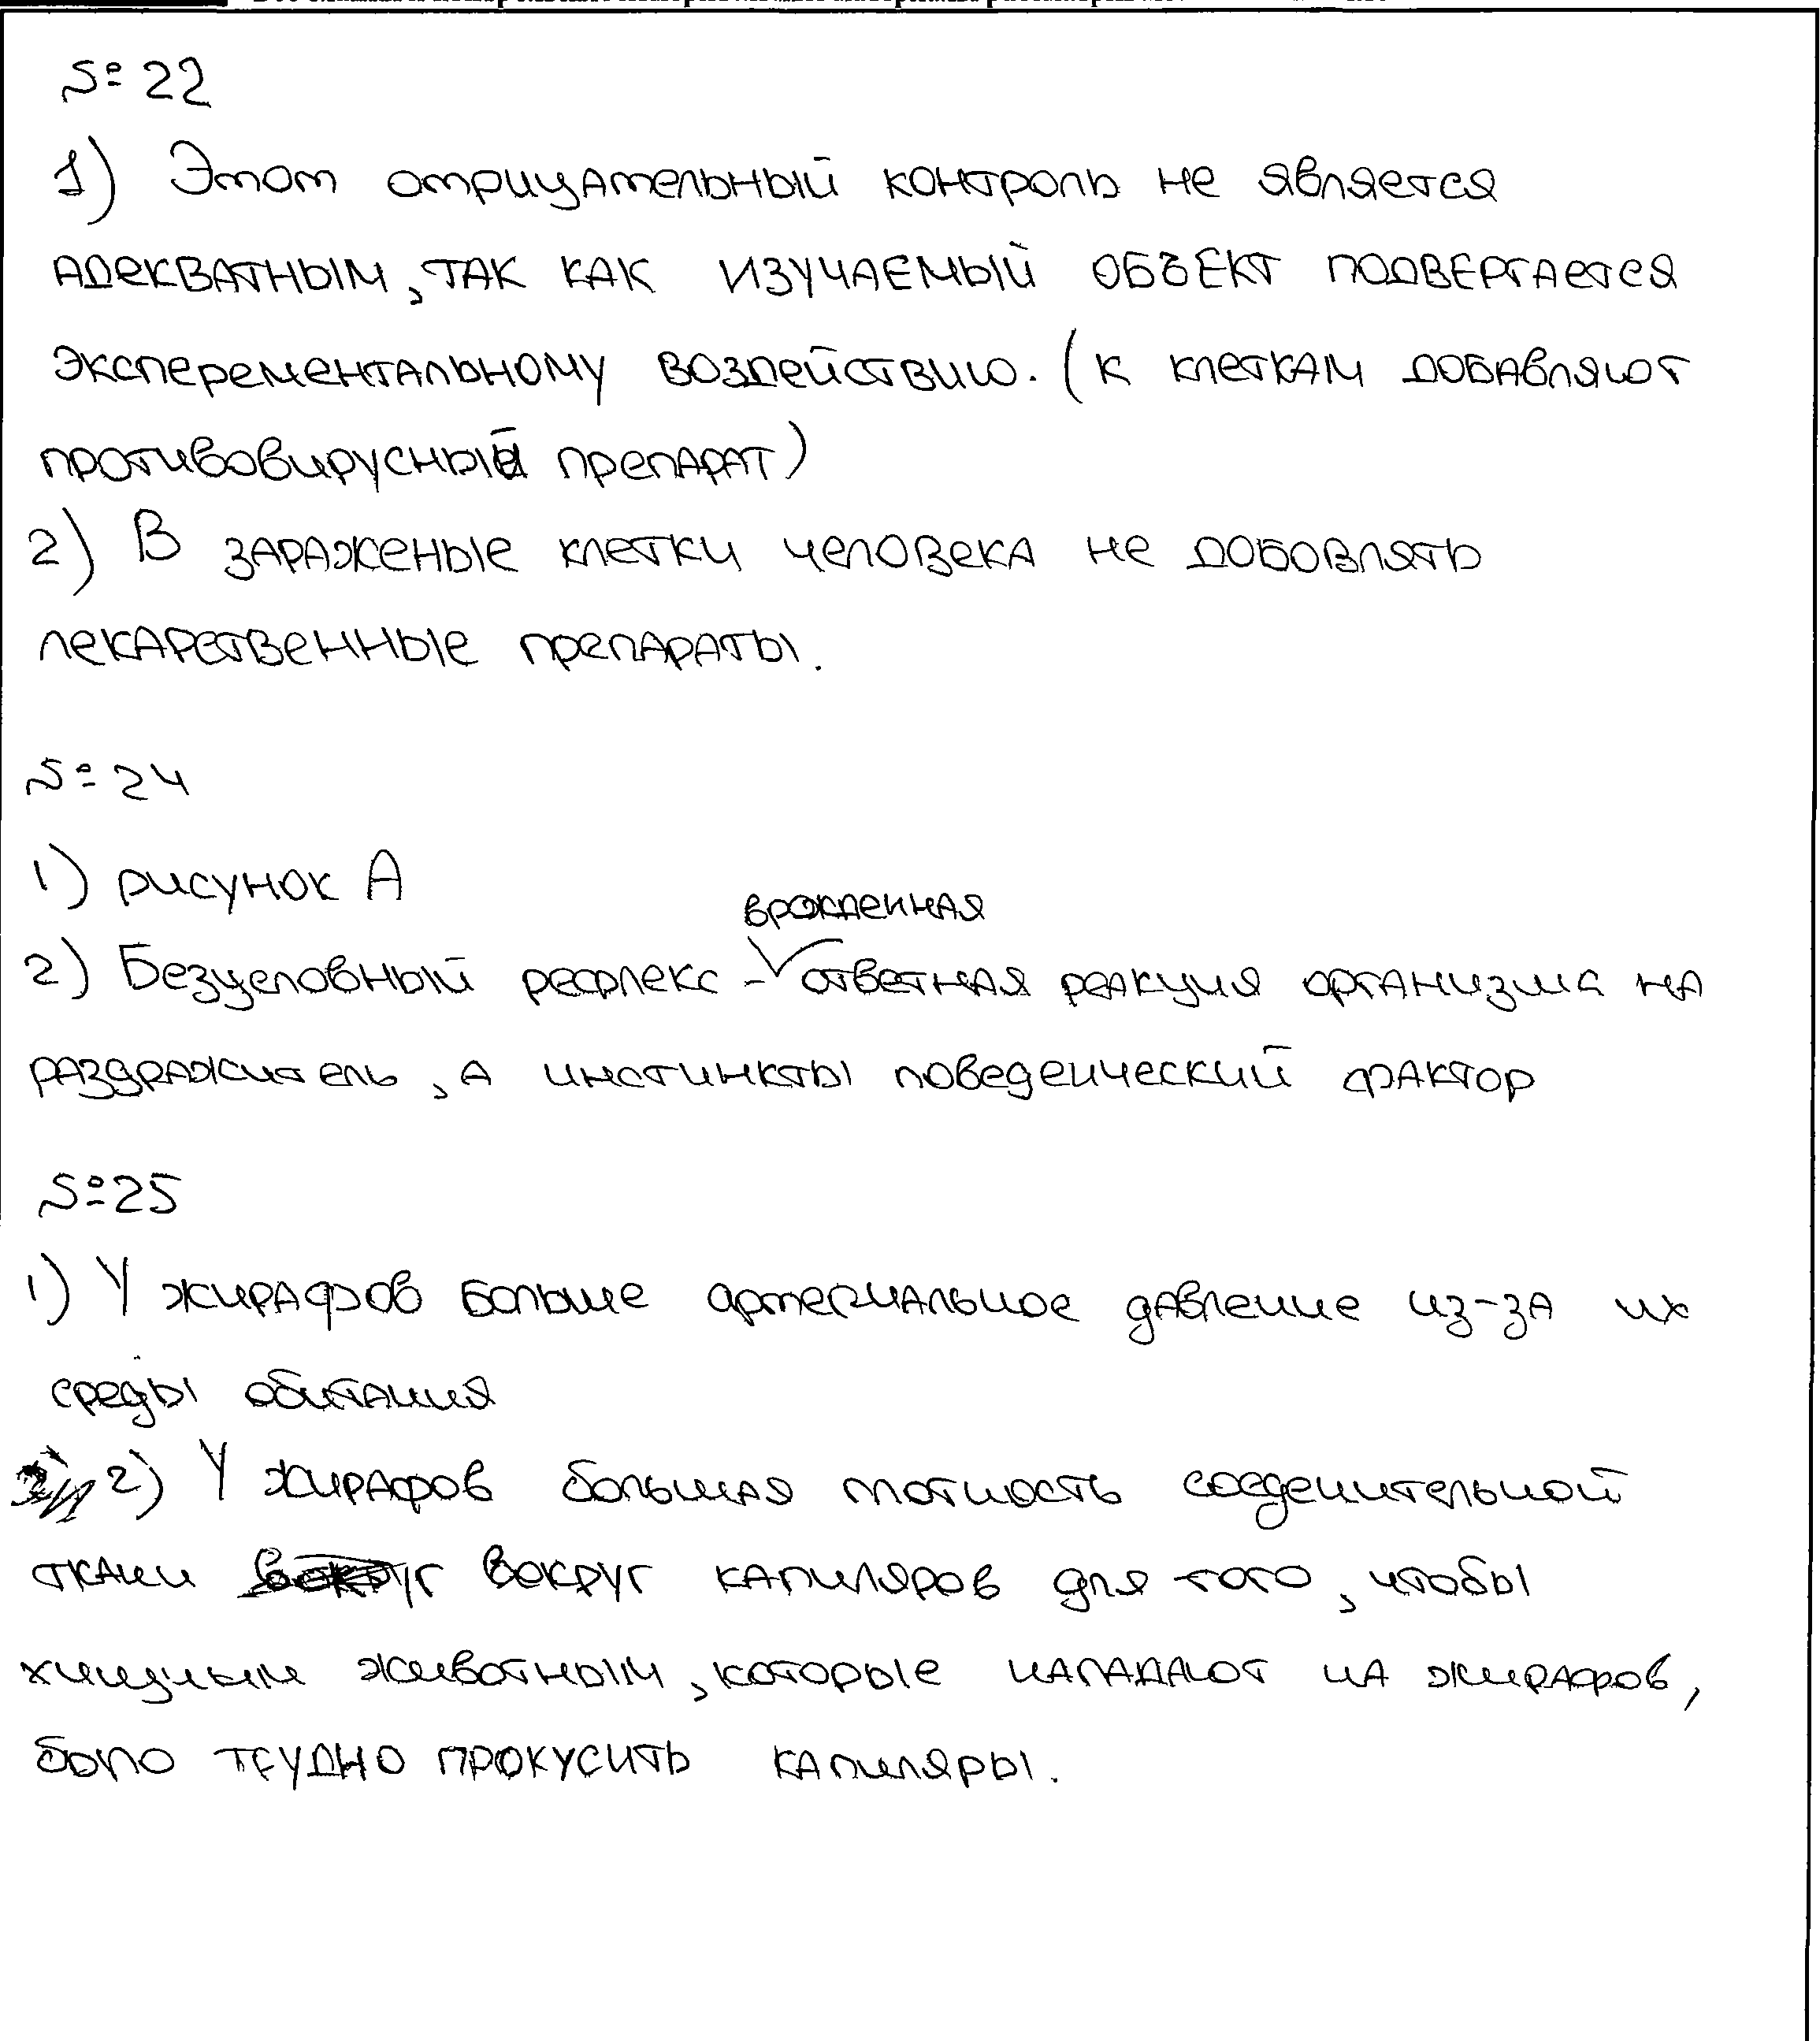 № 22
1) Этот отрицательный контроль не является
адекватным, так как изучаемый объект подвергается
эксперементальному воздействию. (к клеткам добавляют
противовирусный препарат)
2) В зараженые клетки человека не добовлять
лекарственные препараты.
№ 24
1) рисунок А
врожденная
2) Безусловный рефлекс - ответная реакция организма на
раздражитель, а инстинкты поведенческий фактор
№ 25
1) У жирафов больше артериальное давление из-за их
среды обитания
2) У жирафов большая плотность соеденительной
ткани вокруг капиляров для того, чтобы
хищным животным, которые нападают на жирафов,
было трудно прокусить капиляры.